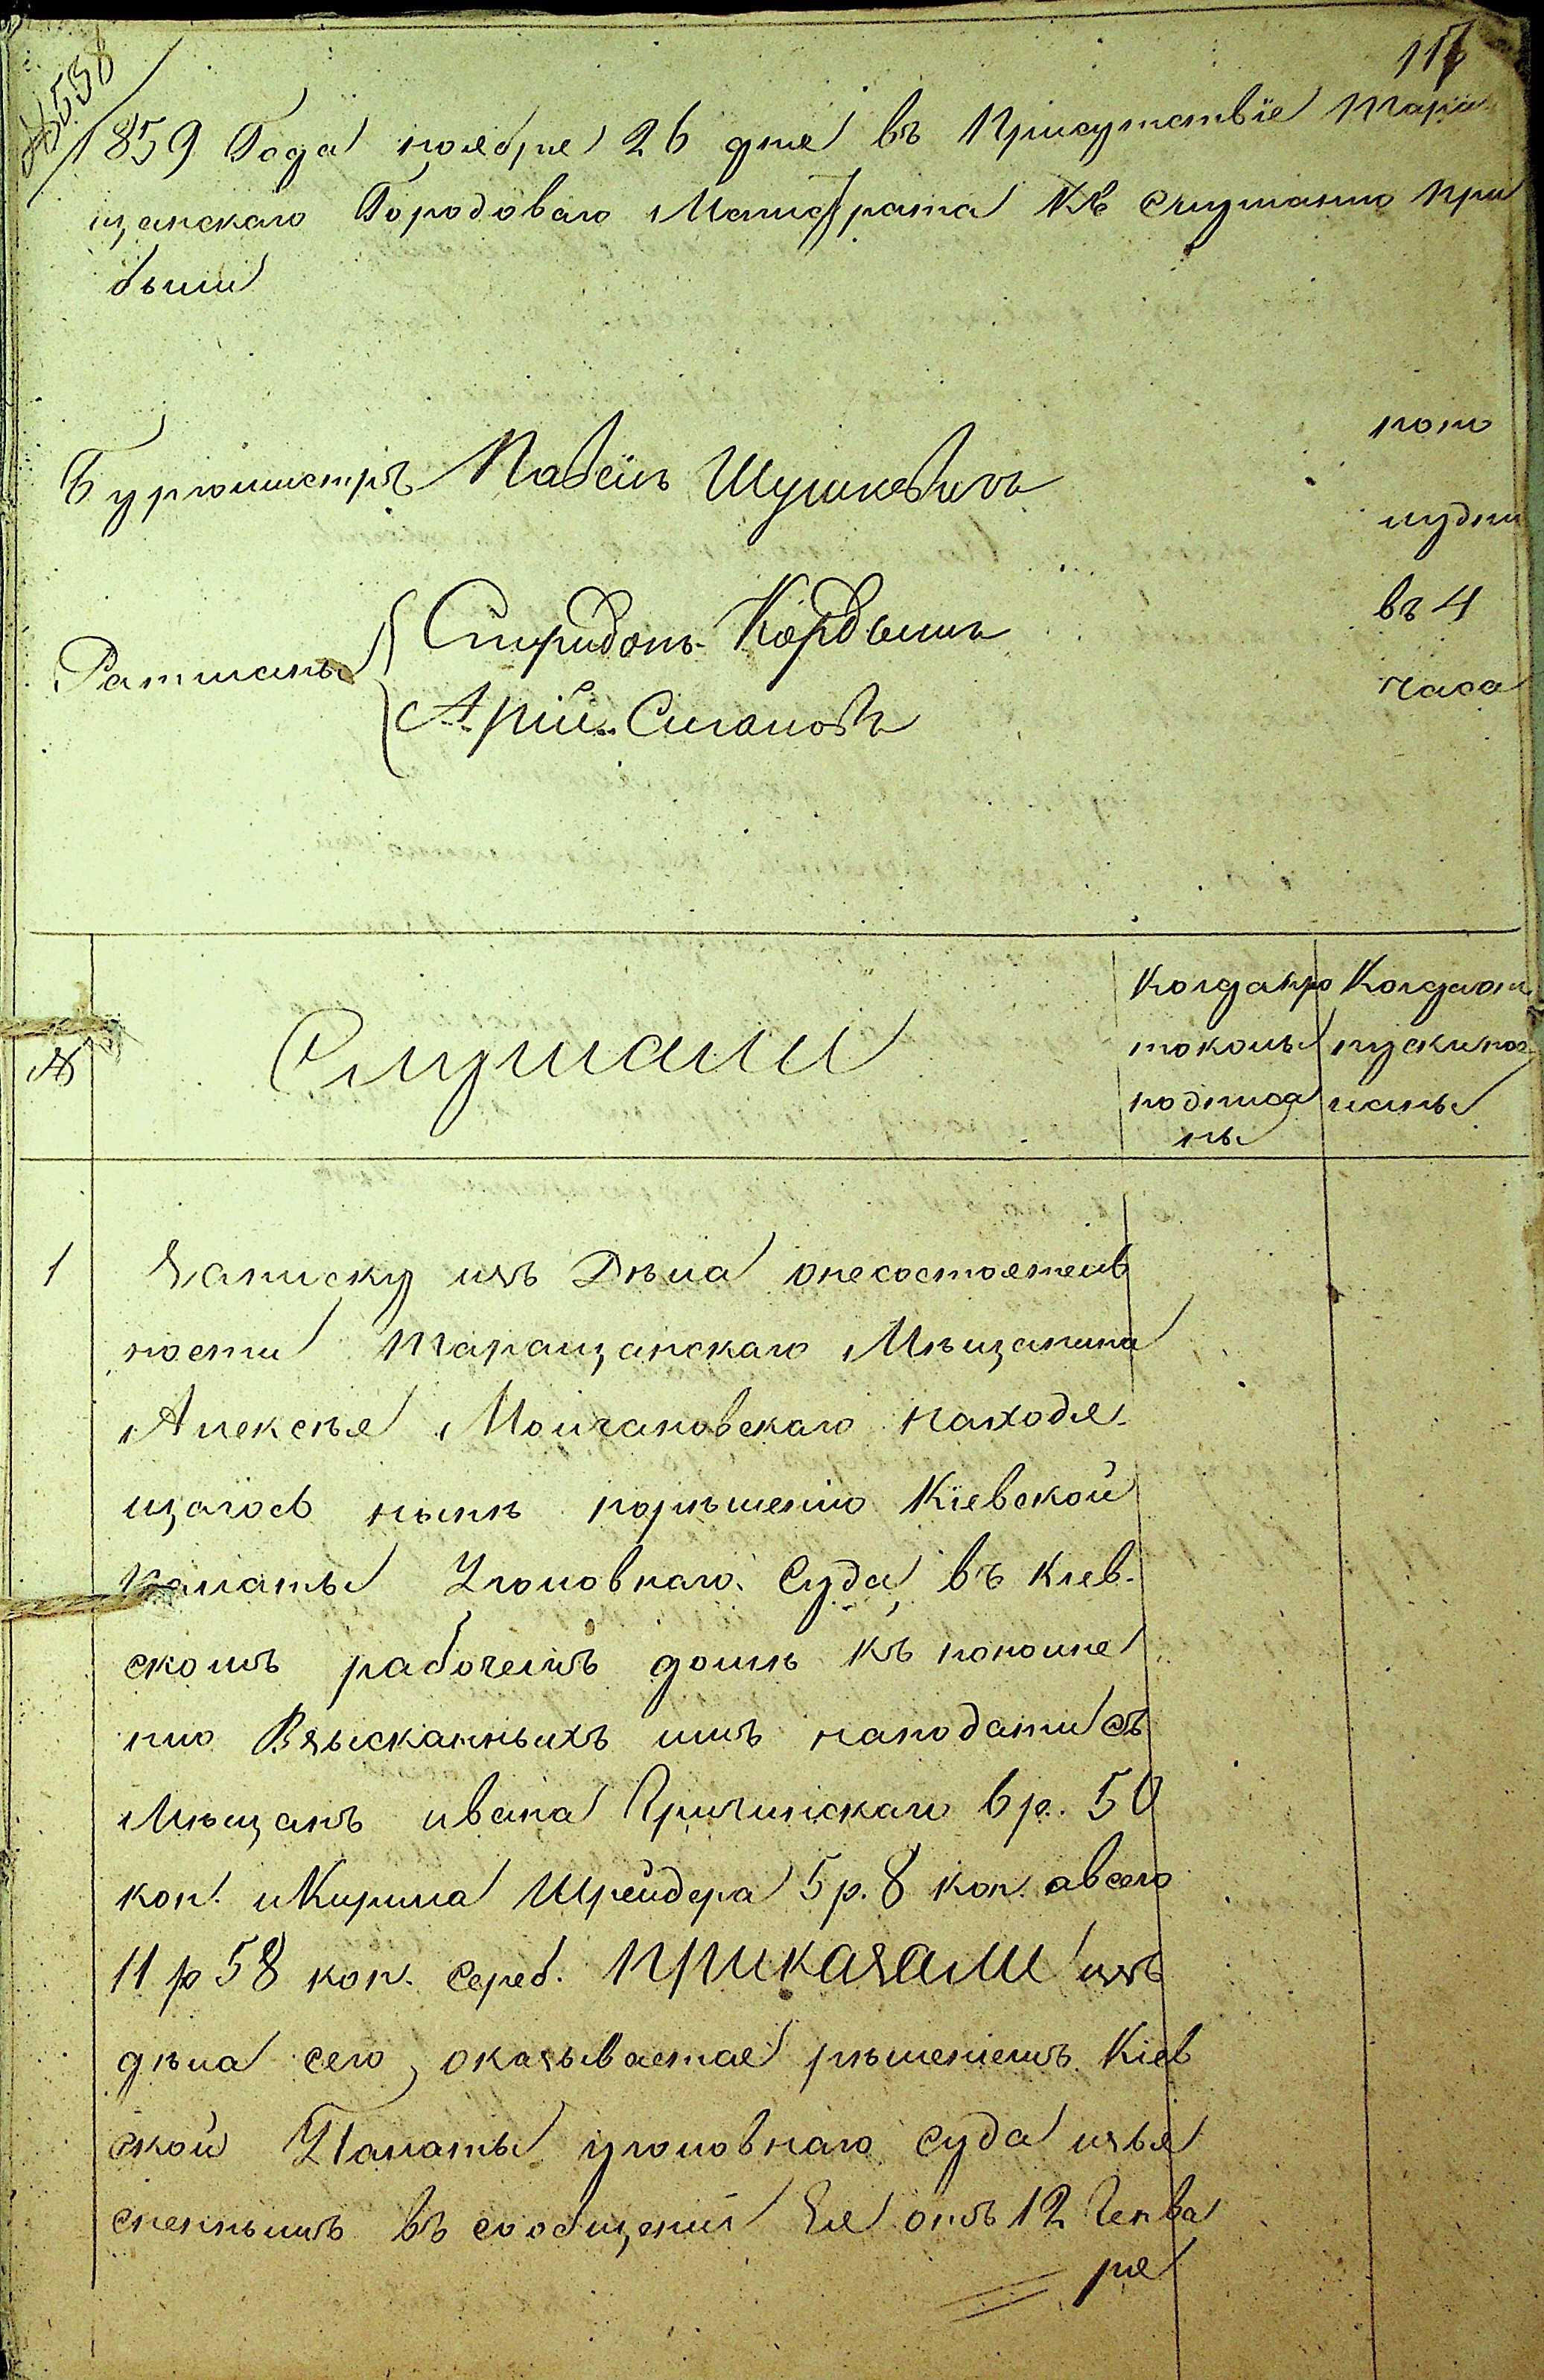 № 538
117
1859 Года ноября 26 дня въ Присутствіе Тара
щанскаго Городоваго Магистрата Къ слушанію при
были
по по
лудни
въ 4
часа
Бургомистръ Павелъ Шушкевичъ
Ратманы
Спиридонъ Кордышъ
№
Слушали
Когда про
токолы
подписа
ны
Когда от
пуски пос
ланы
1
Записку изъ Дѣла онесостоятель
ности Таращанскаго Мѣщанина
Алексѣя Молчановскаго находя-
щагося нынѣ порѣшенію Кіевской
Палаты Уголовнаго Суда въ Кіев-
скомъ рабочемъ домѣ къ пополне
нію Взысканныхъ имъ наподати съ
Мѣщанъ ивана 6 р. 50
коп. и Кирила Шрейдера 5 р. 8 коп. авсего
11 р 58 коп. сереб. Приказали изъ
дѣла сего оказывается рѣшеніемъ Кіев
ской Палаты уголовнаго суда изъя
сненнымъ въ сообщеніи Ея отъ 12 Генва
ря